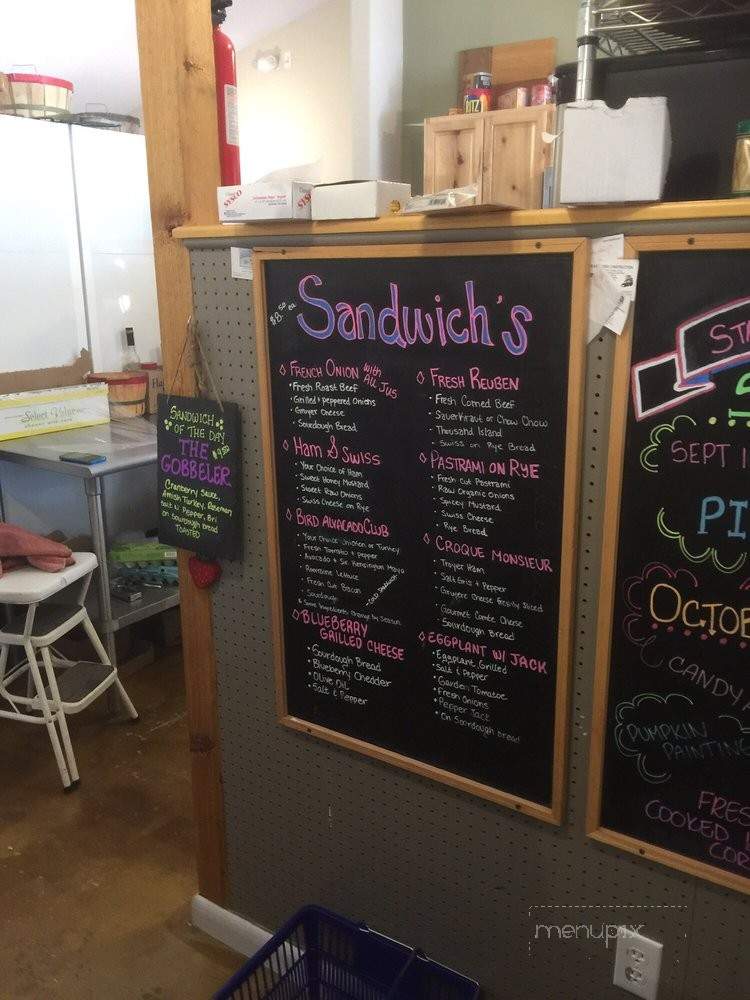 SYSCO
SYSCO
Select Value
SANDWICH
OF THE DAY
THE $9.50
GOBBELER
Cranberry Sauce,
Amish Turkey, Roseman
Salt n Pepper, Bri
on Sourdough bread
TOASTED
$8.50 ea.
Sandwich's
FRENCH ONION with
ALL JUS
Fresh Roast Beef
Grilled & peppered Onions
Gruyer Cheese
Sourdough Bread
HAM & SWISS
Your Choice of Ham
Sweet Honey Mustard
Sweet Raw Onions
Swiss Cheese on Rye
BIRD ALVACADO CLUB
Your Choice Chicken or Turkey
Fresh Tomato & pepper
Avocado & Sir Kensington Mayo
Romaine Lettuce
Fresh Cut Bacon
Sourdough
Some Ingredients Change by Season
OLD SANDWICH
BLUEBERRY
GRILLED CHEESE
Sourdough Bread
Blueberry Chedder
Olive Oil
Salt & Pepper
FRESH REUBEN
Fresh Corned Beef
Sauerkraut or Chow Chow
Thousand Island
Swiss on Rye Bread
PASTRAMI ON RYE
Fresh Cut Pastrami
Raw Organic Onions
Spicey Mustard
Swiss Cheese
Rye Bread
CROQUE MONSIEUR
Troyer Ham
Salt Gris & Pepper
Gruyere Cheese Freshly Sliced
Gourmet Comte Cheese
Sourdough Bread
EGGPLANT W/ JACK
Eggplant, Grilled
Salt & Pepper
Garden Tomatoe
Fresh Onions
Pepper Jack
On Sourdough bread
SEPT 1
PI
OCTOB
CANDY
PUMPKIN
PAINTING
FRES
COOKED
COR
menupix